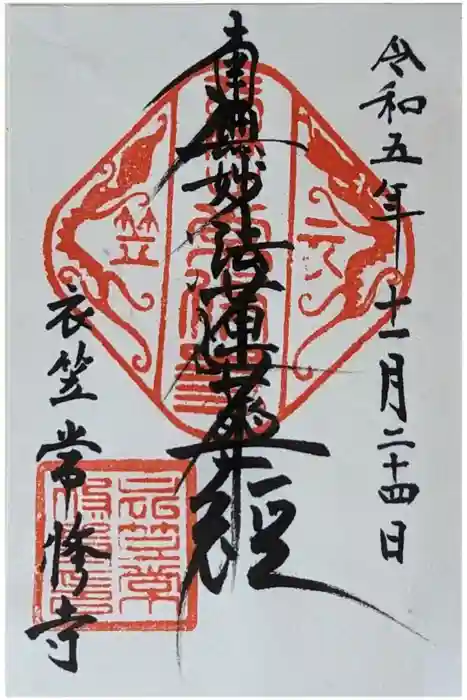 令和五年十一月二十四日
南無妙法蓮華経
衣笠常修寺
衣
笠